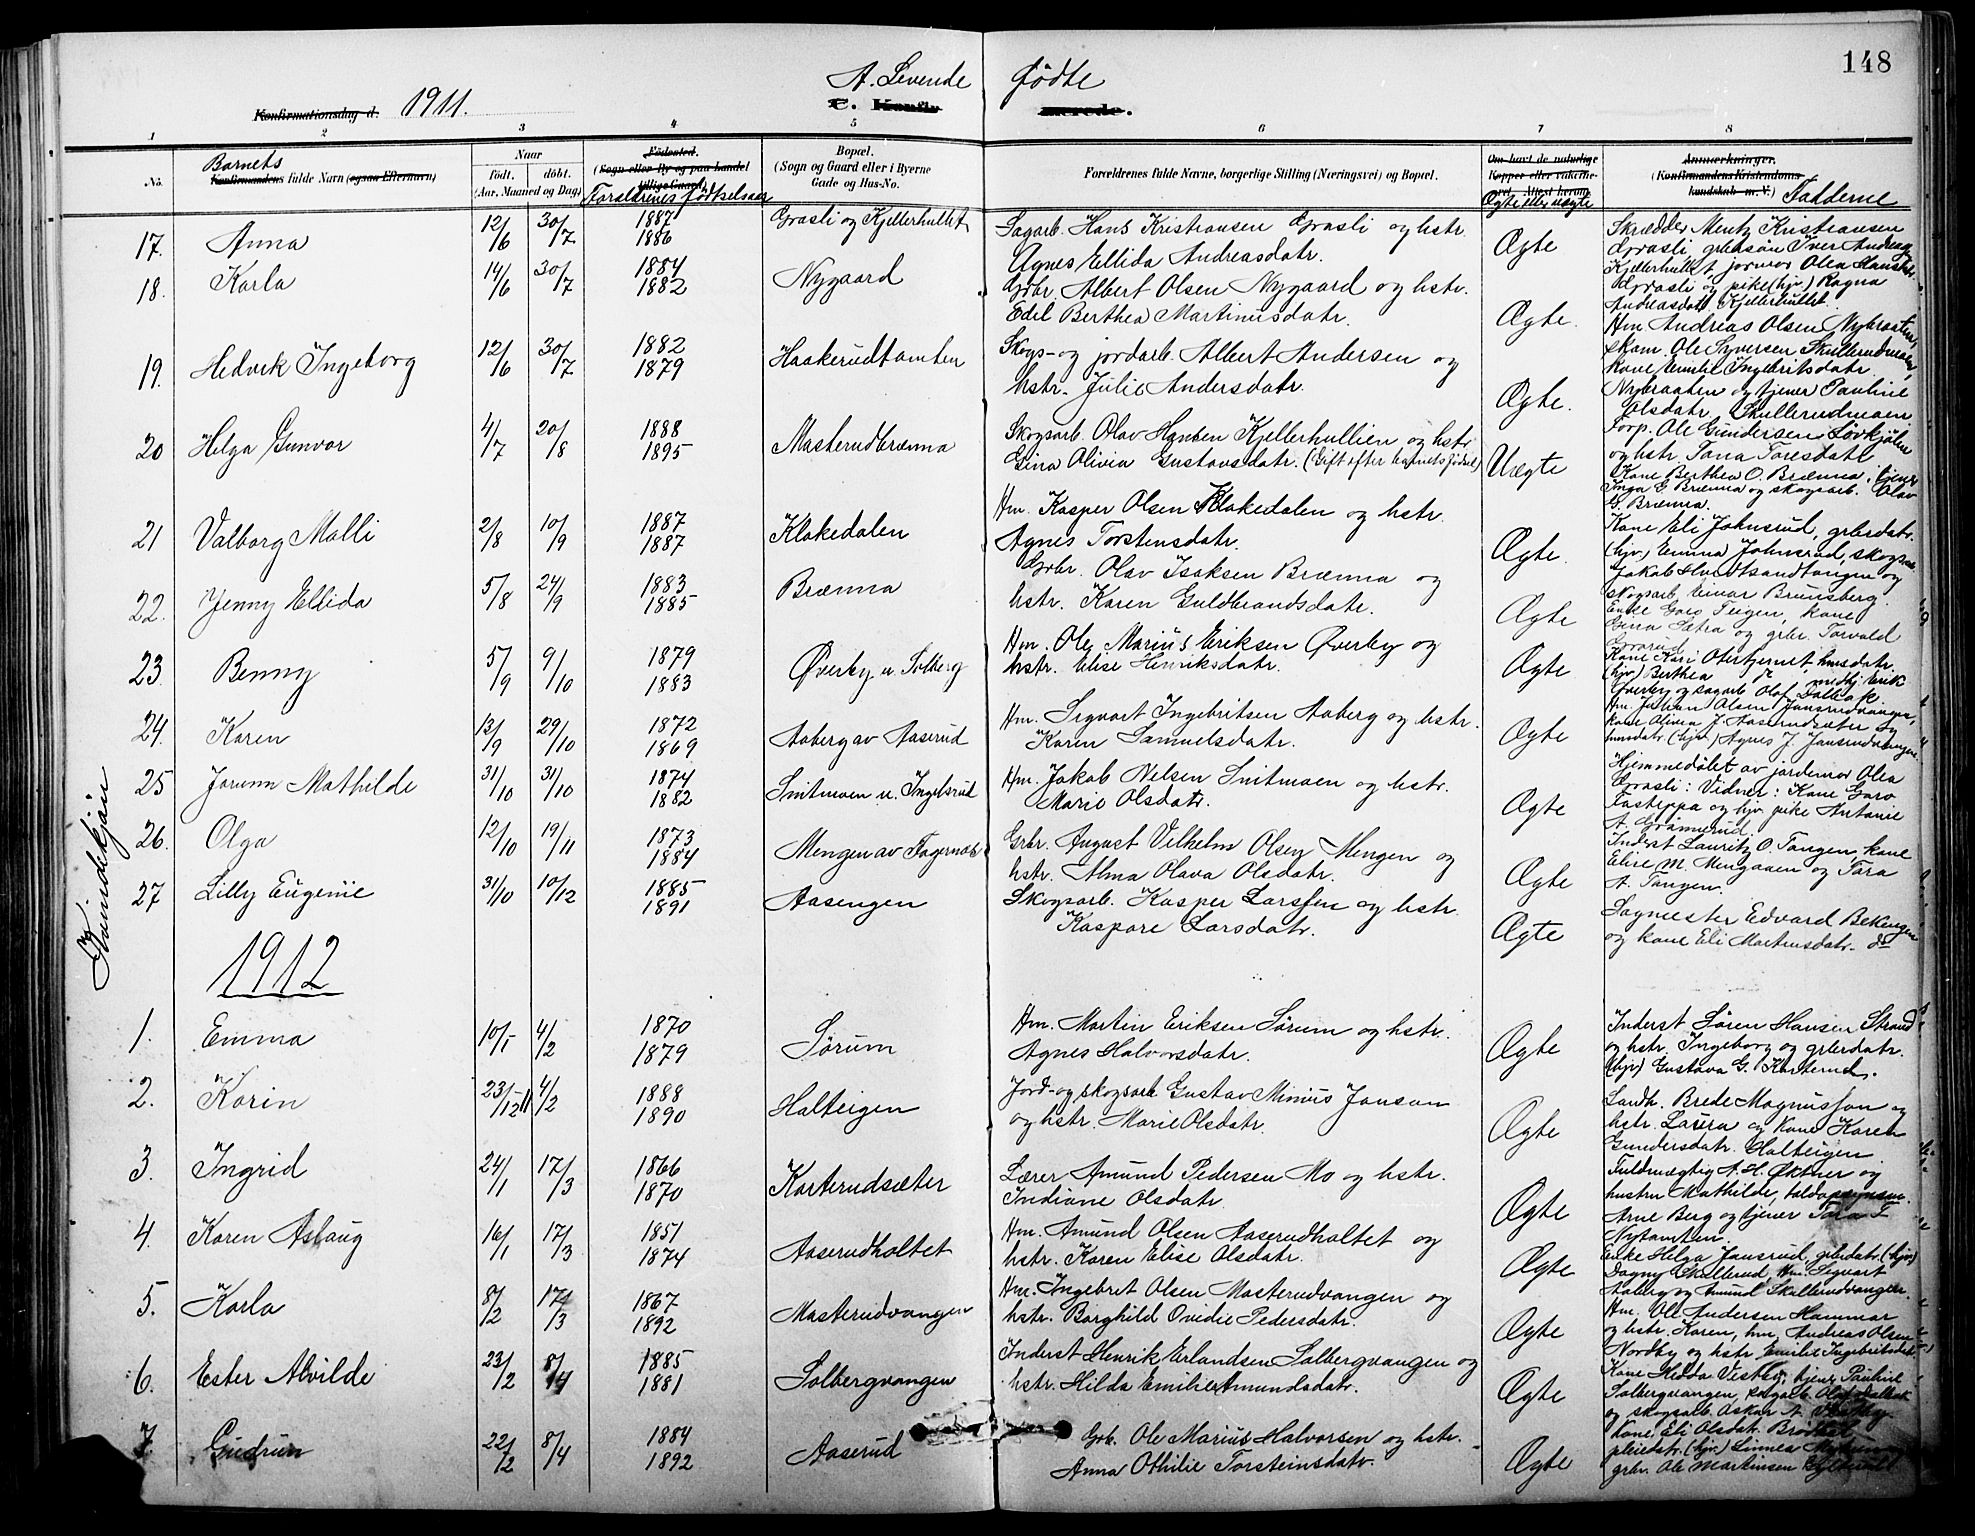 148
A. Levende Fødte
Konfirmationsdag d. 1911.
C. Konfir- merede.
1 2 3 4 5 6 7 8
No. Barnets Konfirmandens fulde Navn (ogsaa Efternavn)
Naar født. døbt. (Aar, Maaned og Dag)
Fødested. (Sogn eller By og paa Landet tillige Gaard) Forældrenes fødselsaar
Bopæl. (Sogn og Gaard eller i Byerne Gade og Hus-No.
Forældrenes fulde Navne, borgerlige Stilling (Næringsvei) og Bopæl.
Om havt de naturlige Kopper eller vakcineret. Ægte eller uægte
Anmærkninger. (Konfirmandens Kristendomskundskab m. V.) Fadderne
17. Anna 12/6 30/7 1887 1886 Grasli og Kjellerhullet
Sagarb. Hans Kristiansen Grasli og hstr. Agnes Ellida Andreasdatr. Ægte
Skrædder Mentz Kristiansen Grasli, grbrsøn Iver Andreas Kjellerhullet, jormor Olea Grasli og pike (hjv.) Ragna Andreasdatr. Kjellerhullet.
18. Karla 14/6 30/7 1884 1882 Nygaard
Grbr. Albert Olsen Nygaard og hstr. Edel Berthea Martinusdatr. Ægte.
Hm. Andreas Olsen Nybraaten, Ole Syversen Skullerudmoen, kone Emilie Ingebritsdatr. Nybraaten og tjener Pauline Olsdatr. Skullerudmoen
19. Hedvik Ingeborg 12/6 30/7 1882 1879 Haakerudtomten
Skogs- og jordarb. Albert Andersen og hstr. Julie Andersdatr. Ægte.
20 Helga Gunvor 4/7 20/8 1888 1895 Masterudbrænna
Skogsarb. Olav Hansen Kjellerhullien og hstr. Gina Olivia Gustavsdatr. (Gift efter barnets fødsel) Uægte
Forp. Ole Gundersen Løvkjølen og hstr. Tana Toresdatr. Kone Berthea O. Brænna, tjener Inga G. Brænna og skogsarb. Olav G. Brænna.
21 Valborg Malli 2/8 10/9 1887 1887 Klokedalen
Hm. Kasper Olsen Klokedalen og hstr. Agnes Torstensdatr. Ægte.
Kone Eli Johnsrud, grbrdatr. (hjv.) Emma Johnsrud, skogsarb. Jakob og skogsarb. Einar Brunsberg.
22. Jenny Ellida 5/8 24/9 1883 1885 Brænna
Grbr. Olav Isaksen Brænna og hstr. Karen Guldbrandsdatr. Ægte
Enke Goro Teigen, kone Gina Sætra og grbr. Torvald
23. Benny 5/9 9/10 1879 1883 Øverby u. Solberg
Hm. Ole Marius Eriksen Øverby og hstr. Elise Henriksdatr. Ægte
Kone Kari Otertjernet, husdatr. (hjv.) Berthea Erik Øverby og sagarb. Olaf Dalbak
24. Karen 13/9 29/10 1872 1869 Aaberg av Aaserud
Hm. Sigvart Ingebritsen Aaberg og hstr. Karen Samuelsdatr. Ægte
Hm. Johan Olsen Jansrudvangen, kone Olivia J. Aaserudsæter og husdatr. (hjv.) Agnes J. Jansrudvangen
25 Jorunn Mathilde 31/10 31/10 1874 1882 Snitmoen u. Ingelsrud
Hm. Jakob Nelsen Snitmoen og hstr. Marie Olsdatr. Ægte
Hjemmedøbt av jordemor Olea Grasli: Vidner: Kone Goro og hjv. pike Antonie A. Grønnerud.
26. Olga 12/10 19/11 1873 1884 Mengen av Fagernæs
Grbr. August Vilhelm Olsen Mengen og hstr. Alma Olava Olsdatr. Ægte
Inderst Lauritz O. Tangen, kone Elise M. Mengaaen og Tara A. Tangen.
27 Lilly Eugenie 31/10 10/12 1885 1891 Aasengen
Skogsarb. Kasper Larssen og hstr. Kaspare Larsdatr. Ægte
Sagmester Edvard Bekengen og kone Eli Martinusdatr. do
1912
1. Emma 10/1 4/2 1870 1879 Sørum
Hm. Martin Eriksen Sørum og hstr. Agnes Halvorsdatr. Ægte
Inderst Søren Hansen Strand og hstr. Ingeborg og grbrdatr. (hjv) Gustava G. Karterud.
2. Karin 23/12 11 4/2 1888 1890 Halteigen
Jord- og skogsarb. Gustav Minius Janson og hstr. Marie Olsdatr. Ægte
Landh. Brede Magnussøn og hstr. Laura og kone Karen Gundersdatr. Halteigen
3. Ingrid 24/1 17/3 1866 1870 Karterudsæter
Lærer Amund Pedersen Mo og hstr. Indiane Olsdatr. Ægte
Fuldmægtig A. H. Øktner og hustru Mathilde, toldopsynsm. Arne Berg og tjener Tora Nytomten.
4. Karen Aslaug 16/1 17/3 1851 1874 Aaserudholtet
Hm. Amund Olsen Aaserudholtet og hstr. Karen Elise Olsdatr. Ægte
Enke Helga Jansrud, grbrdatr. (hjv) Dagny Skullerud, Hm. Sigvart Aaberg og Amund Skillerudvangen.
5. Karla 8/2 17/3 1867 1892 Masterudvangen
Hm. Ingebret Olsen Masterudvangen og hstr. Borghild Ovidie Pedersdatr. Ægte
Hm. Ole Andersen Hammar og hstr. Karen, hm. Andreas Olsen Nordby og hstr. Emilie Ingebritsdatr.
6. Ester Alvilde 23/2 8/4 1885 1881 Solbergvangen
Inderst Henrik Erlandsen Solbergvangen og hstr. Hilda Emilie Amundsdatr. Ægte
Kone Hedda Vestby, tjener Pauline Solbergvangen, sagarb. Olaf Dalbak og skogsarb. Oskar A.
7. Gudrun 22/2 8/4 1884 1892 Aaserud
Grb. Ole Marius Halvorsen og hstr. Anna Othilie Torsteinsdatr. Ægte
Kone Eli Olsdatr. (hjv.) Linnea grbr. Ole Martinsen
Kvindekjøn